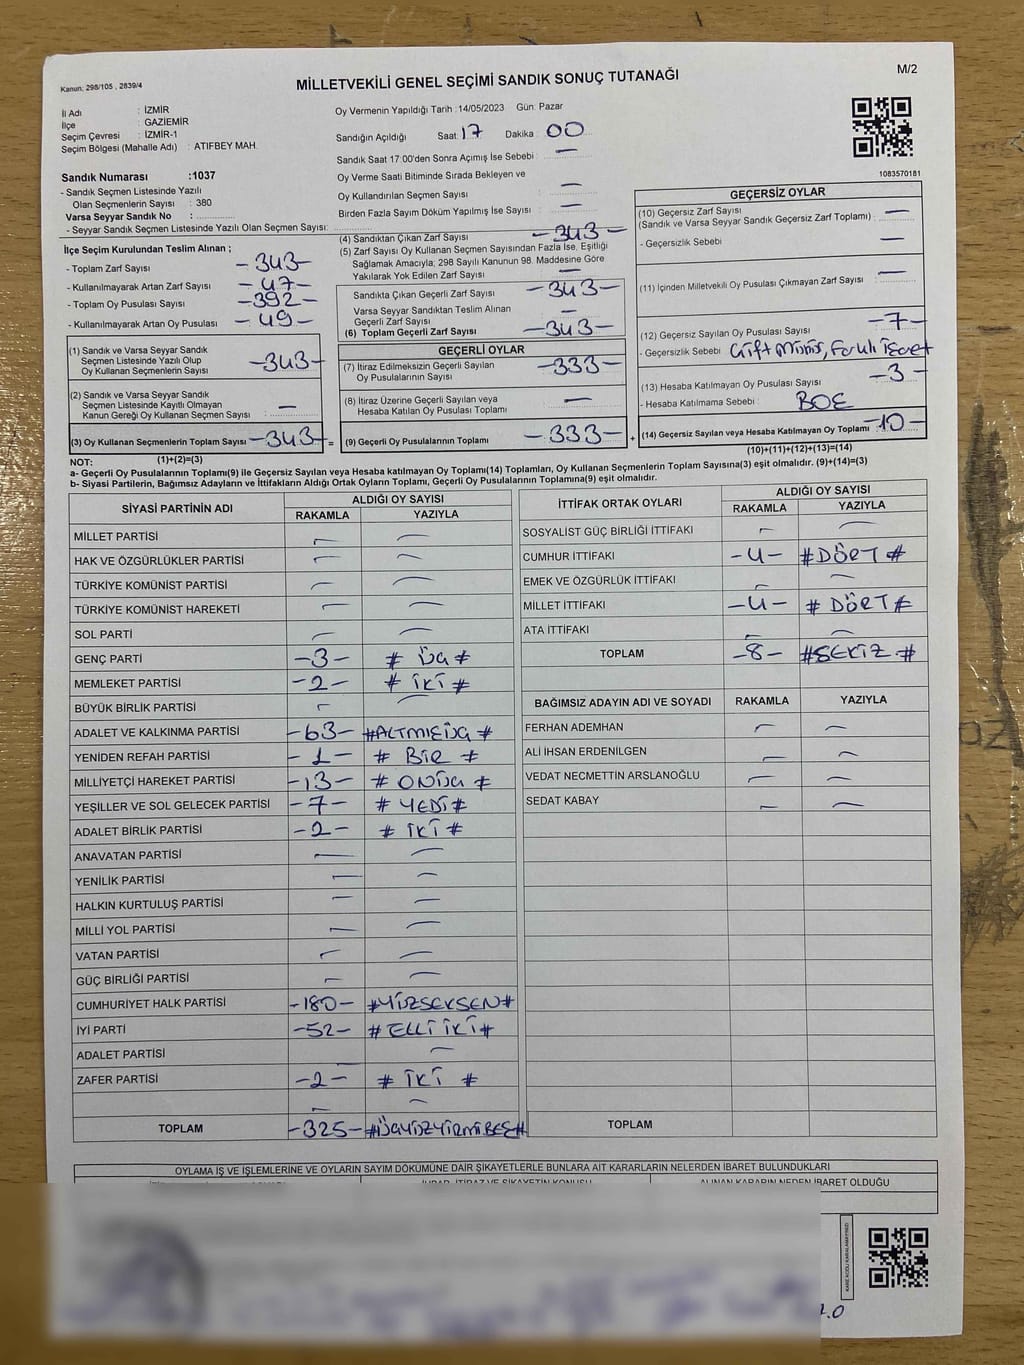 Kanun: 298/105 , 2839/4
MİLLETVEKİLİ GENEL SEÇİMİ SANDIK SONUÇ TUTANAĞI
M/2
İl Adı : İZMİR
İlçe : GAZİEMİR
Seçim Çevresi : İZMİR-1
Seçim Bölgesi (Mahalle Adı) : ATIFBEY MAH.
Oy Vermenin Yapıldığı Tarih :14/05/2023 Gün: Pazar
Sandığın Açıldığı Saat: 17 Dakika : 00
Sandık Saat 17:00'den Sonra Açımış İse Sebebi : —
Oy Verme Saati Bitiminde Sırada Bekleyen ve
Oy Kullandırılan Seçmen Sayısı : —
Birden Fazla Sayım Döküm Yapılmış İse Sayısı : —
1083570181
Sandık Numarası :1037
- Sandık Seçmen Listesinde Yazılı
Olan Seçmenlerin Sayısı : 380
Varsa Seyyar Sandık No :
- Seyyar Sandık Seçmen Listesinde Yazılı Olan Seçmen Sayısı:
İlçe Seçim Kurulundan Teslim Alınan ;
- Toplam Zarf Sayısı -343-
- Kullanılmayarak Artan Zarf Sayısı -47-
- Toplam Oy Pusulası Sayısı -392-
- Kullanılmayarak Artan Oy Pusulası -49-
(1) Sandık ve Varsa Seyyar Sandık
Seçmen Listesinde Yazılı Olup
Oy Kullanan Seçmenlerin Sayısı -343-
(2) Sandık ve Varsa Seyyar Sandık
Seçmen Listesinde Kayıtlı Olmayan
Kanun Gereği Oy Kullanan Seçmen Sayısı : —
(3) Oy Kullanan Seçmenlerin Toplam Sayısı -343- =
(1)+(2)=(3)
(4) Sandıktan Çıkan Zarf Sayısı -343-
(5) Zarf Sayısı Oy Kullanan Seçmen Sayısından Fazla İse, Eşitliği
Sağlamak Amacıyla; 298 Sayılı Kanunun 98. Maddesine Göre
Yakılarak Yok Edilen Zarf Sayısı —
Sandıkta Çıkan Geçerli Zarf Sayısı -343-
Varsa Seyyar Sandıktan Teslim Alınan
Geçerli Zarf Sayısı —
(6) Toplam Geçerli Zarf Sayısı -343-
GEÇERLİ OYLAR
(7) İtiraz Edilmeksizin Geçerli Sayılan
Oy Pusulalarının Sayısı -333-
(8) İtiraz Üzerine Geçerli Sayılan veya
Hesaba Katılan Oy Pusulası Toplamı —
(9) Geçerli Oy Pusulalarının Toplamı -333- +
GEÇERSİZ OYLAR
(10) Geçersiz Zarf Sayısı
(Sandık ve Varsa Seyyar Sandık Geçersiz Zarf Toplamı) : —
- Geçersizlik Sebebi —
(11) İçinden Milletvekili Oy Pusulası Çıkmayan Zarf Sayısı —
(12) Geçersiz Sayılan Oy Pusulası Sayısı -7-
- Geçersizlik Sebebi Çift Mühür, Farklı İşaret
(13) Hesaba Katılmayan Oy Pusulası Sayısı -3-
- Hesaba Katılmama Sebebi : BOŞ
(14) Geçersiz Sayılan veya Hesaba Katılmayan Oy Toplamı -10-
(10)+(11)+(12)+(13)=(14)
NOT:
a- Geçerli Oy Pusulalarının Toplamı(9) ile Geçersiz Sayılan veya Hesaba katılmayan Oy Toplamı(14) Toplamları, Oy Kullanan Seçmenlerin Toplam Sayısına(3) eşit olmalıdır. (9)+(14)=(3)
b- Siyasi Partilerin, Bağımsız Adayların ve İttifakların Aldığı Ortak Oyların Toplamı, Geçerli Oy Pusulalarının Toplamına(9) eşit olmalıdır.
SİYASİ PARTİNİN ADI ALDIĞI OY SAYISI
RAKAMLA YAZIYLA
MİLLET PARTİSİ — —
HAK VE ÖZGÜRLÜKLER PARTİSİ — —
TÜRKİYE KOMÜNİST PARTİSİ — —
TÜRKİYE KOMÜNİST HAREKETİ — —
SOL PARTİ — —
GENÇ PARTİ -3- # ÜÇ #
MEMLEKET PARTİSİ -2- # İKİ #
BÜYÜK BİRLİK PARTİSİ — —
ADALET VE KALKINMA PARTİSİ -63- #ALTMIŞÜÇ #
YENİDEN REFAH PARTİSİ -1- # BİR #
MİLLİYETÇİ HAREKET PARTİSİ -13- # ONÜÇ #
YEŞİLLER VE SOL GELECEK PARTİSİ -7- # YEDİ #
ADALET BİRLİK PARTİSİ -2- # İKİ #
ANAVATAN PARTİSİ — —
YENİLİK PARTİSİ — —
HALKIN KURTULUŞ PARTİSİ — —
MİLLİ YOL PARTİSİ — —
VATAN PARTİSİ — —
GÜÇ BİRLİĞİ PARTİSİ — —
CUMHURİYET HALK PARTİSİ -180- #YÜZSEKSEN#
İYİ PARTİ -52- # ELLİ İKİ #
ADALET PARTİSİ — —
ZAFER PARTİSİ -2- # İKİ #
— —
TOPLAM -325- #ÜÇYÜZYİRMİBEŞ#
İTTİFAK ORTAK OYLARI ALDIĞI OY SAYISI
RAKAMLA YAZIYLA
SOSYALİST GÜÇ BİRLİĞİ İTTİFAKI — —
CUMHUR İTTİFAKI -4- #DÖRT #
EMEK VE ÖZGÜRLÜK İTTİFAKI — —
MİLLET İTTİFAKI -4- # DÖRT #
ATA İTTİFAKI — —
TOPLAM -8- #SEKİZ #
BAĞIMSIZ ADAYIN ADI VE SOYADI RAKAMLA YAZIYLA
FERHAN ADEMHAN — —
ALİ İHSAN ERDENİLGEN — —
VEDAT NECMETTİN ARSLANOĞLU — —
SEDAT KABAY — —
TOPLAM
OYLAMA İŞ VE İŞLEMLERİNE VE OYLARIN SAYIM DÖKÜMÜNE DAİR ŞİKAYETLERLE BUNLARA AİT KARARLARIN NELERDEN İBARET BULUNDUKLARI
ALINAN KARARIN NEDEN İBARET OLDUĞU